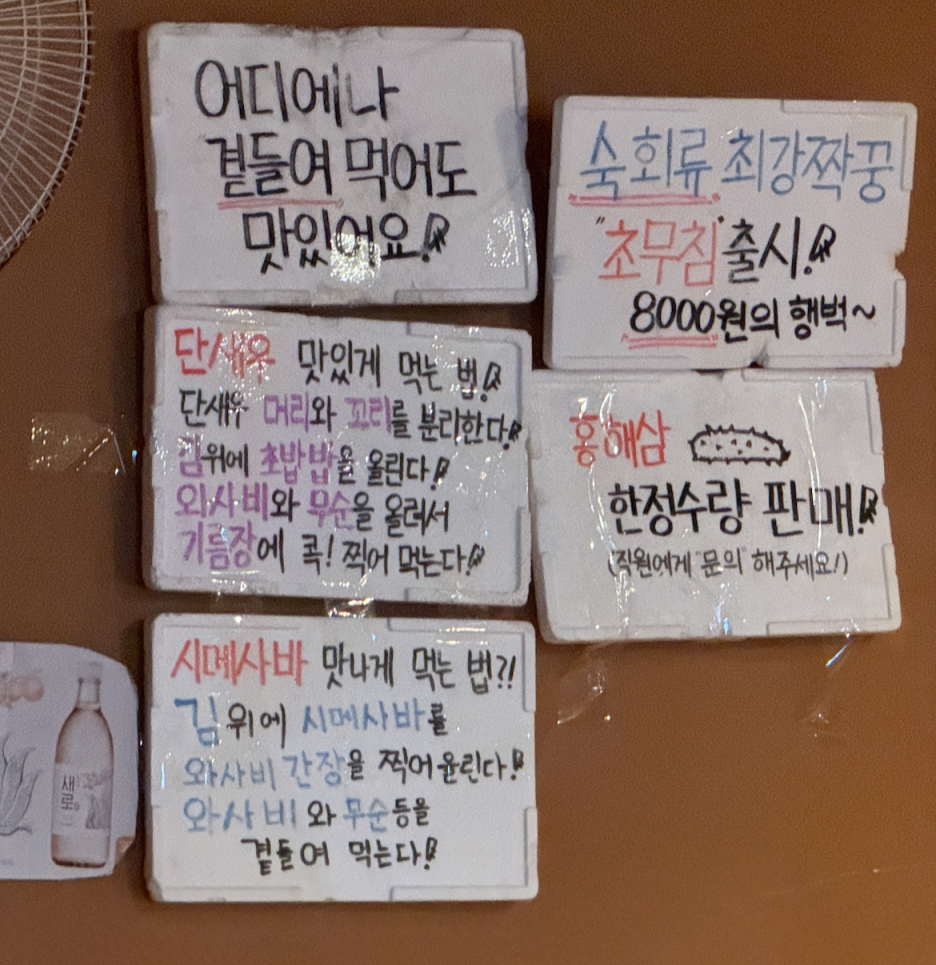 어디에나
곁들여 먹어도
맛있어요!
숙회류 최강짝꿍
"초무침"출시!
8000원의 행벅~
단새우 맛있게 먹는 법!
단새우 머리와 꼬리를 분리한다!
김위에 초밥밥을 올린다!
와사비와 무순을 올려서
기름장에 콕! 찍어 먹는다!
홍해삼
한정수량 판매!
(직원에게 "문의" 해주세요!)
시메사바 맛나게 먹는 법?!
김위에 시메사바를
와사비 간장을 찍어 올린다!
와사비와 무순등을
곁들여 먹는다!
새로